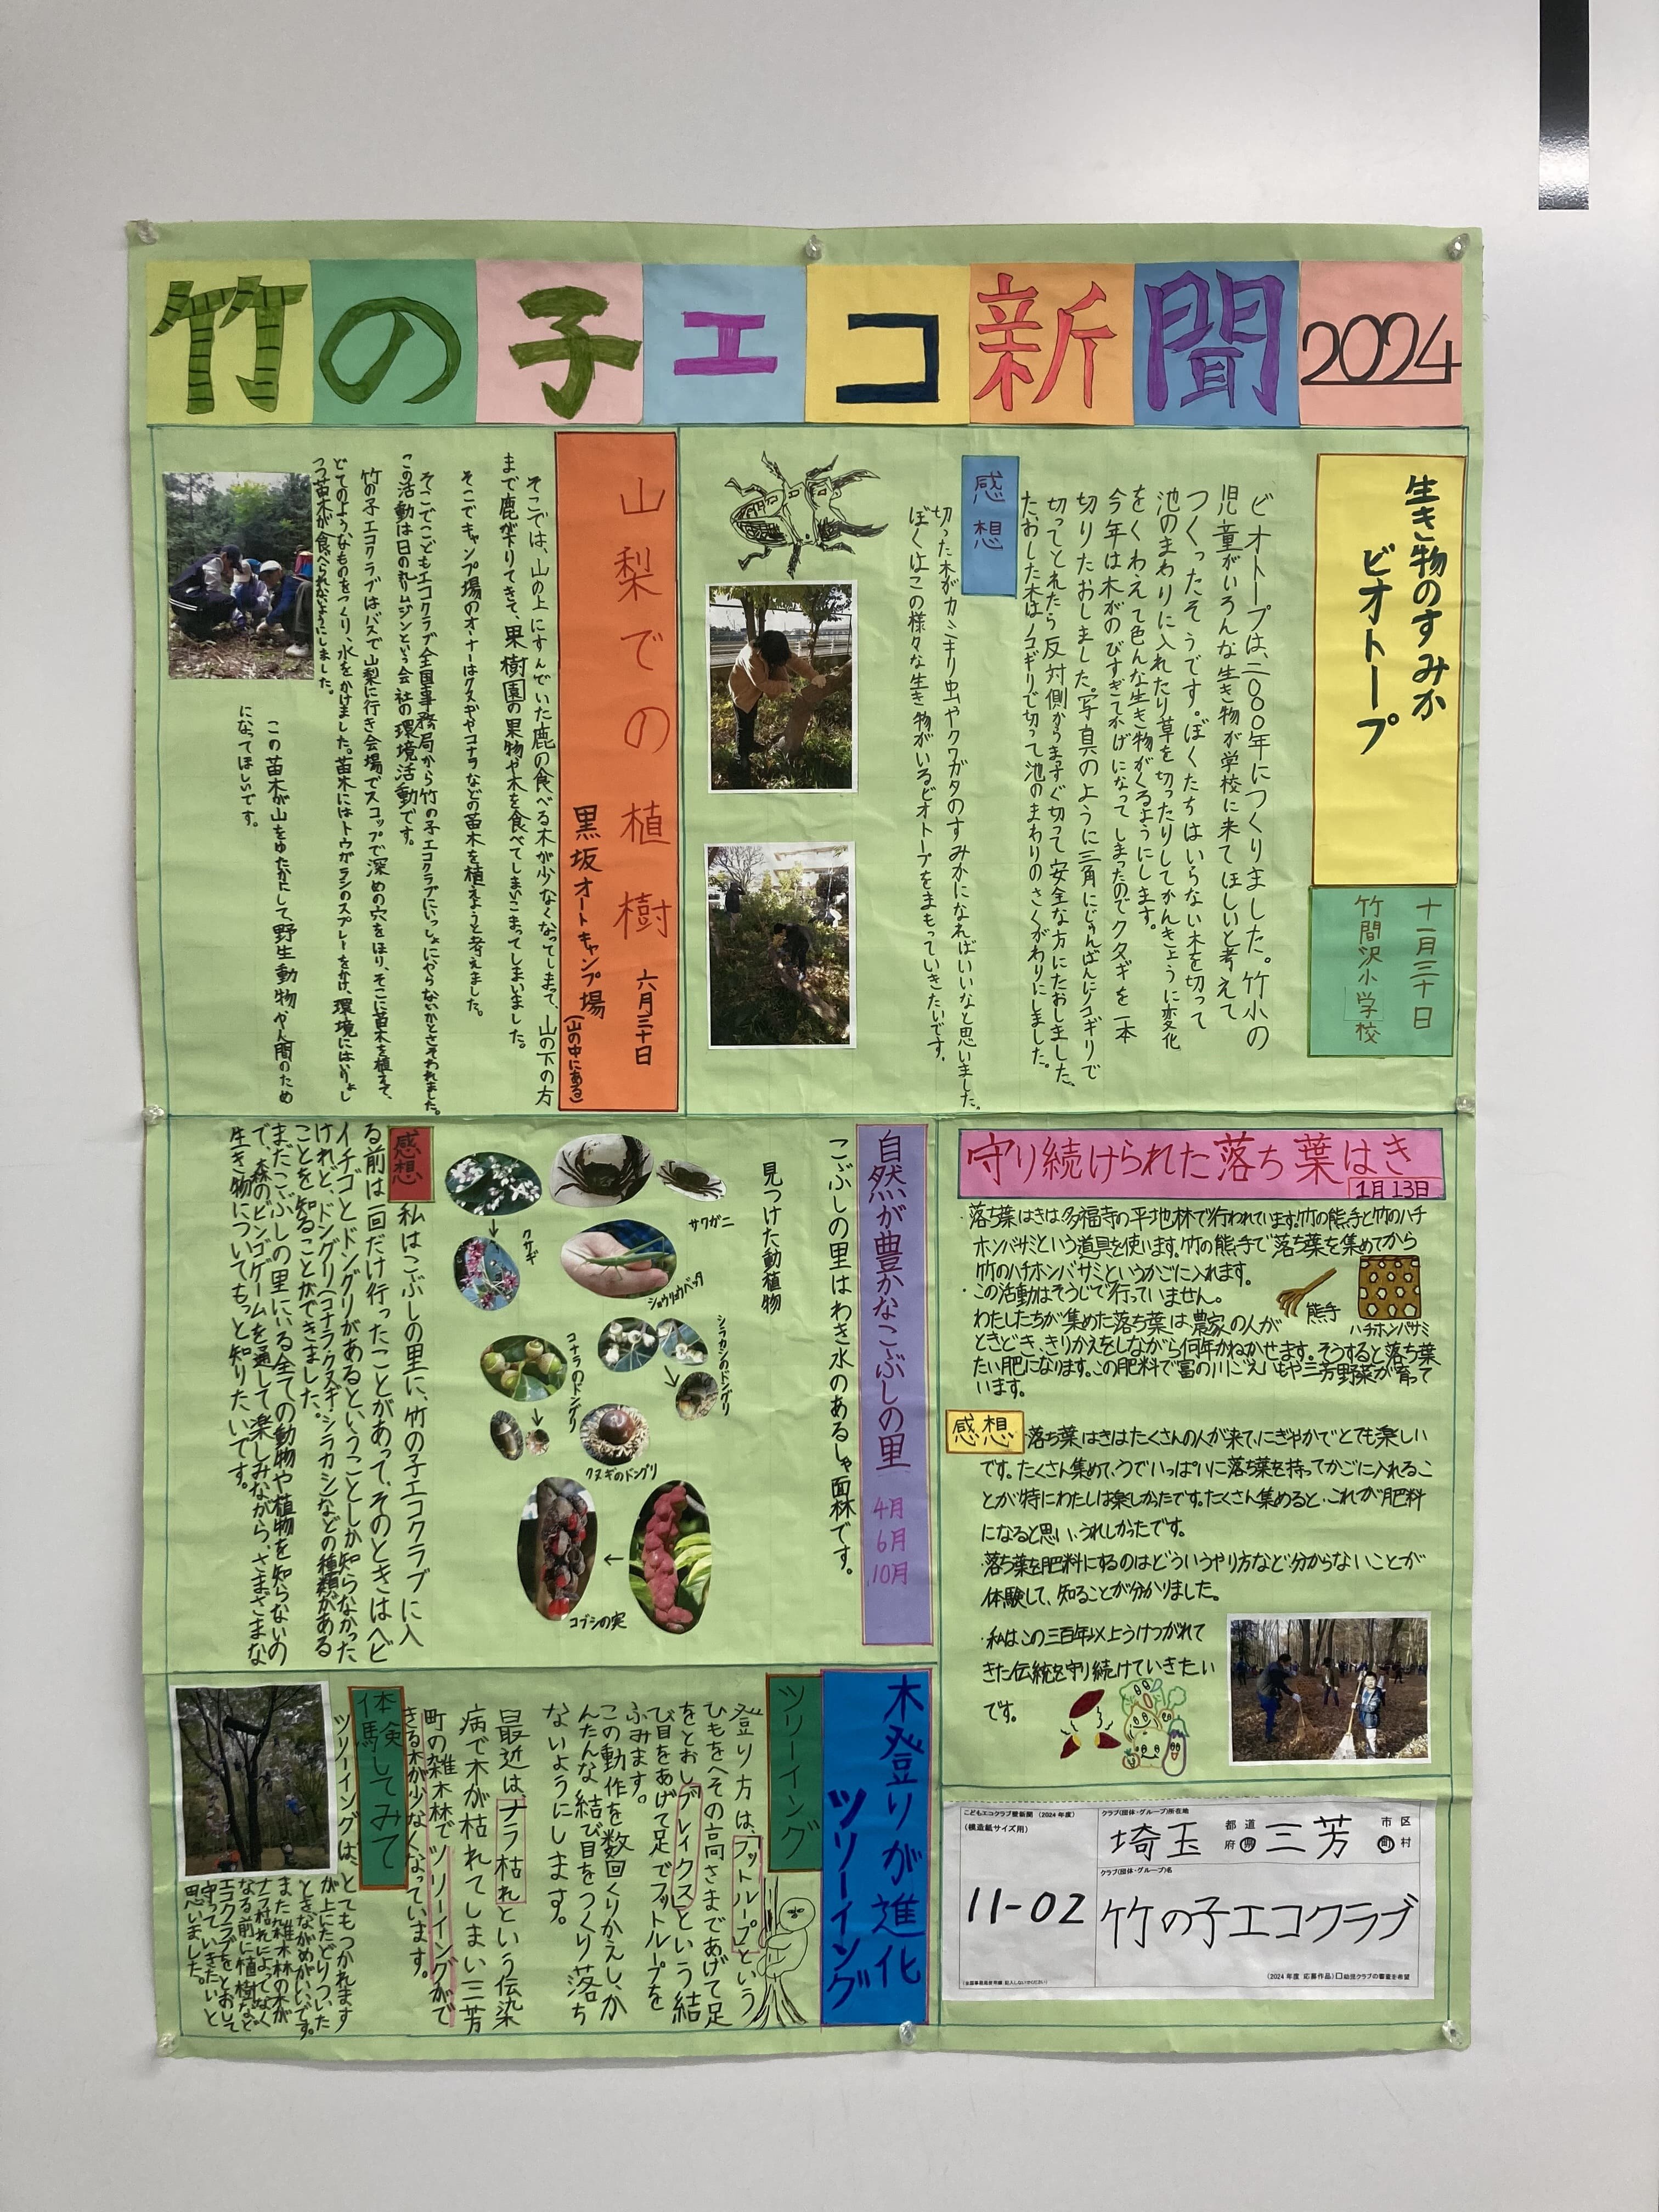 竹の子エコ新聞2024
生き物のすみか
ビオトープ
十一月三十日
竹間沢小学校
ビオトープは、二〇〇〇年につくりました。竹小の
児童がいろんな生き物が学校に来てほしいと考えて
つくったそうです。ぼくたちはいらない木を切って
池のまわりに入れたり草を切ったりしてかんきょうに変化
をくわえて色んな生き物がくるようにします。
今年は木がのびすぎて木かげになってしまったのでクヌギを一本
切りたおしました。写真のように三角にじゅんばんにノコギリで
切ってとれたら反対側からまっすぐ切って安全な方にたおしました。
たおした木はノコギリで切って池のまわりのさくがわりにしました。
感想
切った木がカミキリ虫やクワガタのすみかになればいいなと思いました。
ぼくはこの様々な生き物がいるビオトープをまもっていきたいです。
山梨での植樹 六月三十日
黒坂オートキャンプ場(山の中にある)
そこでは、山の上にすんでいた鹿の食べる木が少なくなってしまって、山の下の方
まで鹿が下りてきて、果樹園の果物や木を食べてしまいこまってしまいました。
そこでキャンプ場のオーナーはクヌギやコナラなどの苗木を植えようと考えました。
そこでこどもエコクラブ全国事務局から竹の子エコクラブにいっしょにやらないかとさそわれました。
この活動は日の丸リムジンという会社の環境活動です。
竹の子エコクラブはバスで山梨に行き会場でスコップで深めの穴をほり、そこに苗木を植えて、
どてのようなものをつくり、水をかけました。苗木にはトウガラシのスプレーをかけ、環境にはいりょし
つつ苗木が食べられないようにしました。
この苗木が山をゆたかにして、野生動物や人間のため
になってほしいです。
守り続けられた落ち葉はき
1月13日
・落ち葉はきは、多福寺の平地林で行われています。竹の熊手と竹のハチ
ホンバサミという道具を使います。竹の熊手で落ち葉を集めてから
竹のハチホンバサミというかごに入れます。
・この活動はそうじで行っていません。
わたしたちが集めた落ち葉は、農家の人が
ときどき、きりかえをしながら何年かねかせます。そうすると落ち葉
たい肥になります。この肥料で富の川ごえいもや三芳野菜が育って
います。
熊手
ハチホンバサミ
感想
・落ち葉はきはたくさんの人が来て、にぎやかでとても楽しい
です。たくさん集めて、うでいっぱいに落ち葉を持ってかごに入れるこ
とが特にわたしは楽しかったです。たくさん集めると、これが肥料
になると思い、うれしかったです。
・落ち葉を肥料にするのはどういうやり方など分からないことが
体験して、知ることが分かりました。
・私はこの三百年以上うけつがれて
きた伝統を守り続けていきたい
です。
自然が豊かなこぶしの里 4月 6月 10月
こぶしの里はわき水のあるしゃ面林です。
見つけた動植物
サワガニ
クサギ
ショウリョウバッタ
シラカシのドングリ
コナラのドングリ
クヌギのドングリ
コブシの実
感想
私はこぶしの里に、竹の子エコクラブに入
る前は一回だけ行ったことがあって、そのときはヘビ
イチゴとドングリがあるということしか知らなかった
けれど、ドングリ(コナラ、クヌギ、シラカシなどの種類がある
ことを知ることができました。
まだこぶしの里にいる全ての動物や植物を知らないの
で、森のビンゴゲームを通して楽しみながら、さまざまな
生き物についてもっと知りたいです。
木登りが進化
ツリーイング
ツリーイング
登り方は、「フットループ」という
ひもをへその高さまであげて足
をとおし「ブレイクス」という結
び目をあげて足でフットループを
ふみます。
この動作を数回くりかえし、か
んたんな結び目をつくり落ち
ないようにします。
最近は、ナラ枯れという伝染
病で木が枯れてしまい三芳
町の雑木林でツリーイングがで
きる木が少なくなっています。
体験してみて
ツリーイングは、とてもつかれます
が上にたどりついた
ときながめがいいです。
また雑木林の木が
ナラ枯れによってなく
なる前に植樹など
エコクラブをとおして
守っていきたいと
思いました。
こどもエコクラブ壁新聞 (2024年度)
(模造紙サイズ用)
11-02
(全国事務局使用欄 記入しないでください)
クラブ(団体・グループ)所在地
埼玉 都道府県 三芳 市区町村
クラブ(団体・グループ)名
竹の子エコクラブ
(2024年度 応募作品) □幼児クラブの審査を希望